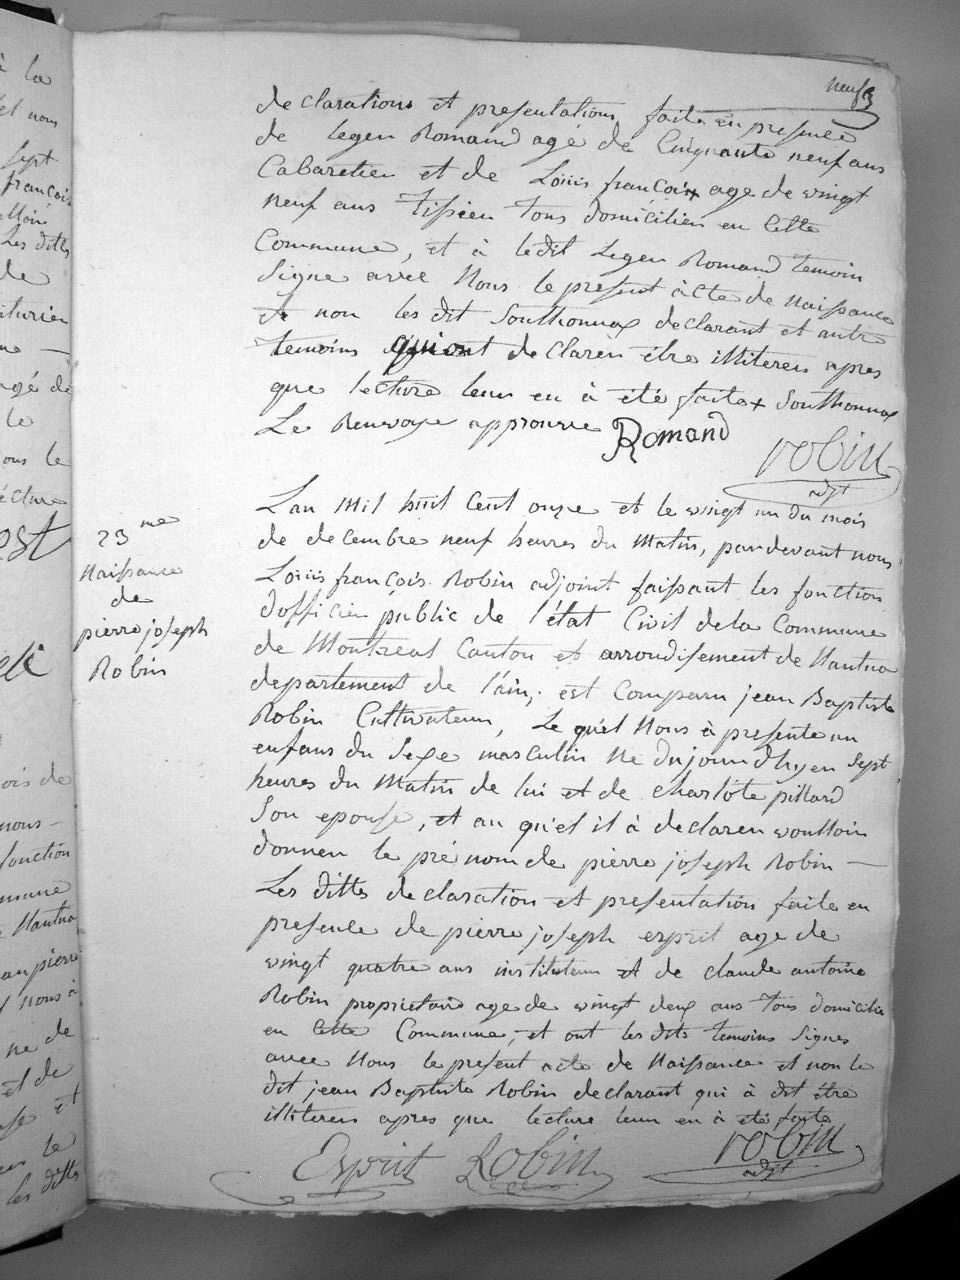 neuf
declarations et presentations faite en presence
de legen Romand agé de Cinquante neuf ans
Cabaretier et de Loüis françois + age de vingt
neuf ans Tissieu Tous domicilien en Cette
Commune, et à ledit Legen Romand temoin
Signe avec Nous le present acte de Naissance
et non les dit Southonnax declarant et autre
temoins qui ont declaren étre illiteren apres
que lecture leur en à été faite + Southonnax
Le Renvoye approuvee Romand
robin
adjt
23me
Naissance
de
pierre joseph
Robin
L'an mil huit Cent onze et le vingt un du mois
de decembre neuf heures du Matin, pardevant nous
Loüis françois Robin adjoint faissant les fonction
dofficier public de l'état Civil de la Commune
de Montreal Canton et arrondisement de Nantua
departement de l'ain, est Comparu jean Baptiste
Robin Cultivateur, Le quel Nous à presente un
enfans du Sexe masculin Ne dujourdhy en Sept
heures du Matin de lui et de Charlote pillard
Son epouse, et au qu'el il à declaren voulloir
donner le prénom de pierre joseph Robin —
Les dittes declaration et presentation faite en
presence de pierre joseph esprit age de
vingt quatre ans instituteur et de claude antoine
Robin proprietaire age de vingt deux ans Tous domicilie
en Cette Commune, et ont les dits temoins Signes
avec Nous le present acte de Naissance et non le
dit jean Baptiste Robin declarant qui à dit étre
illiteren apres que lecture leur en à eté faite
Esprit Robin robin
adjt